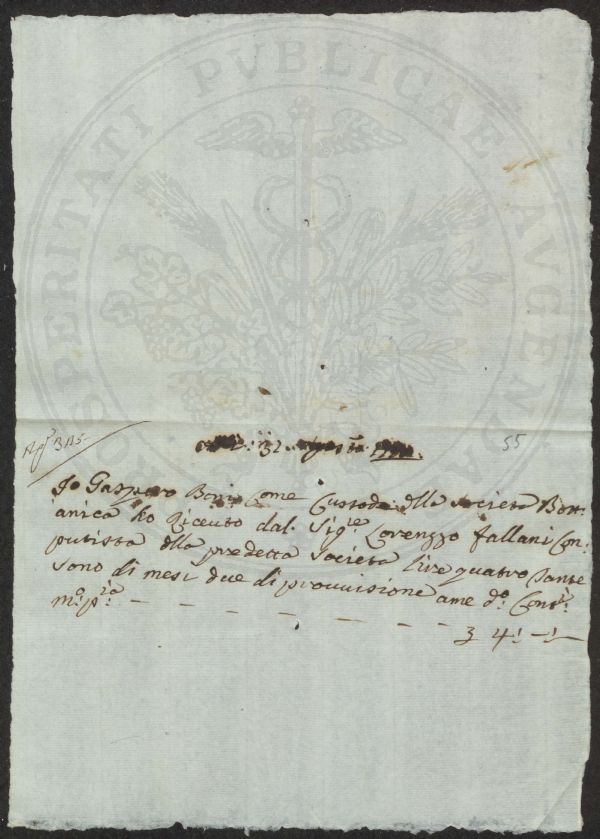 PROSPERITATI PVBLICAE AVGENDAE
55
Io Gaspero Boni Come Custode della Societa Bott=
anica ho Riceuto dal Sig:re Lorenzzo fallani Con:
putista della predetta Societa lire quatro Sante
Sono di mesi due di provvisione a me do:
mo: p:ria
4